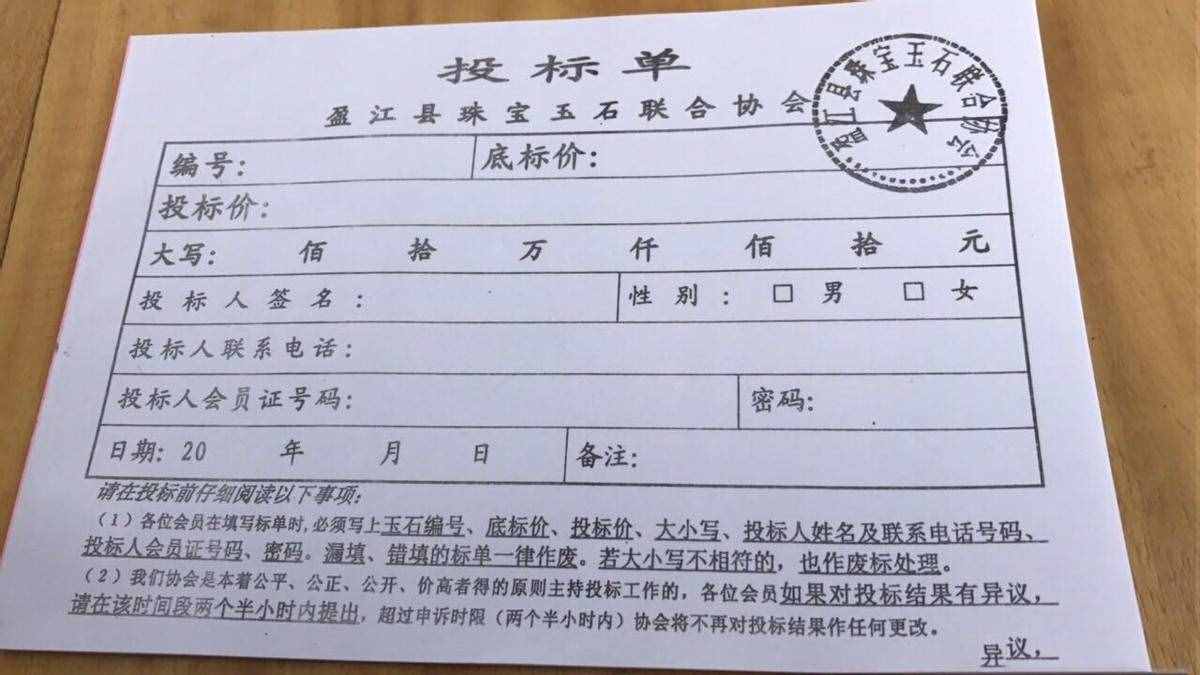 投标单
盈江县珠宝玉石联合协会
盈江县珠宝玉石联合协会
编号: 底标价:
投标价:
大写: 佰 拾 万 仟 佰 拾 元
投标人签名: 性别: □ 男 □ 女
投标人联系电话:
投标人会员证号码: 密码:
日期: 20 年 月 日 备注:
请在投标前仔细阅读以下事项:
(1)各位会员在填写标单时,必须写上玉石编号、底标价、投标价、大小写、投标人姓名及联系电话号码、
投标人会员证号码、密码。漏填、错填的标单一律作废。若大小写不相符的,也作废标处理。
(2)我们协会是本着公平、公正、公开、价高者得的原则主持投标工作的,各位会员如果对投标结果有异议,
请在该时间段两个半小时内提出,超过申诉时限(两个半小时内)协会将不再对投标结果作任何更改。
异议,